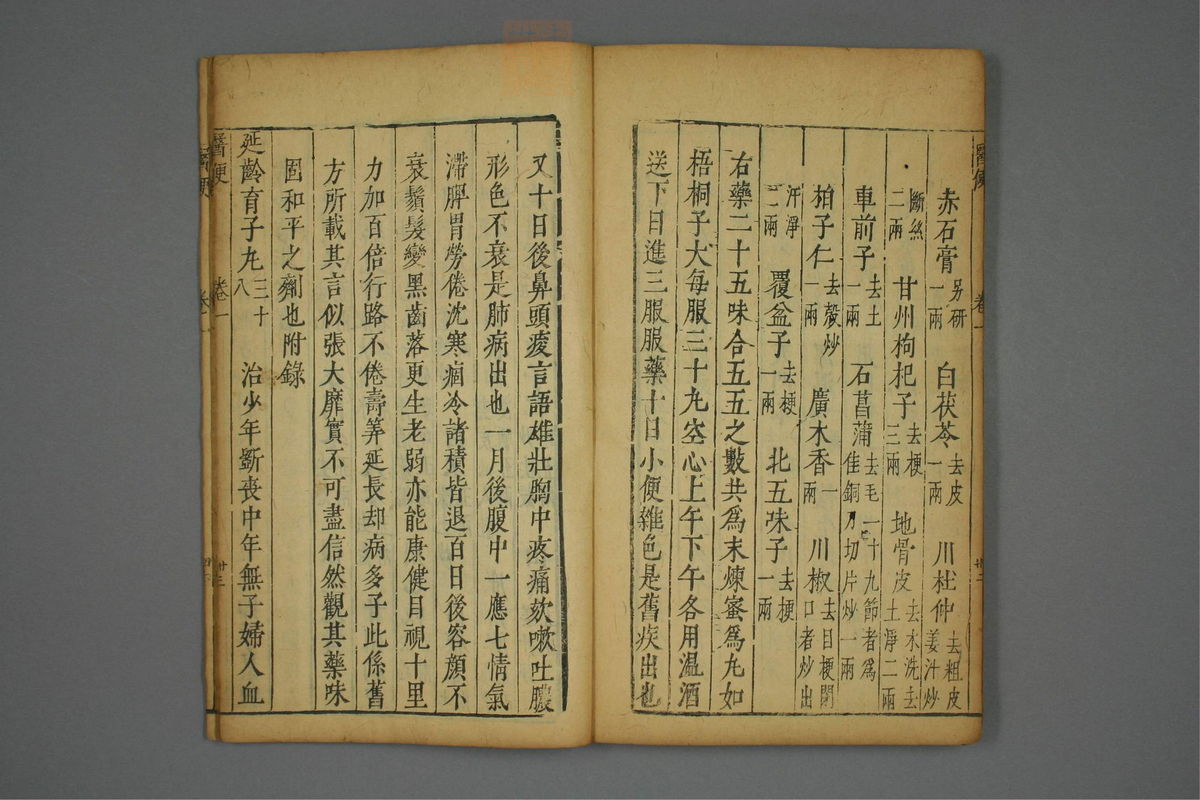 醫便
卷一
卅二
赤石膏另研一兩 白茯苓去皮一兩 川杜仲去粗皮姜汁炒
斷絲二兩 甘州枸杞子去梗三兩 地骨皮去木洗去土淨二兩
車前子去土一兩 石菖蒲去毛一寸九節者爲佳銅刀切片炒一兩
柏子仁去殼炒一兩 廣木香一兩 川椒去目梗閉口者炒出
汗淨二兩 覆盆子去梗一兩 北五味子去梗一兩
右藥二十五味合五五之數共爲末煉蜜爲丸如
梧桐子大每服三十丸空心上午下午各用溫酒
送下日進三服服藥十日小便雜色是舊疾出也
又十日後鼻頭痠言語雄壯胸中疼痛欬嗽吐膿
形色不衰是肺病出也一月後腹中一應七情氣
滯脾胃勞倦沈寒痼冷諸積皆退百日後容顏不
衰鬚髮變黑齒落更生老弱亦能康健目視十里
力加百倍行路不倦壽筭延長却病多子此係舊
方所載其言似張大靡實不可盡信然觀其藥味
固和平之劑也附錄
延齡育子丸三十八 治少年斲喪中年無子婦人血
醫便
卷一
卅三
醫便
卷一